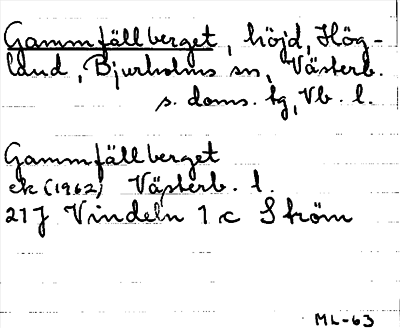 Gammfällberget, höjd, Hög-
land, Bjurholms sn, Västerb.
s. doms. tg, Vb. l.
Gammfällberget
ek (1962) Västerb. l.
21J Vindeln 1 c Ström
ML-63